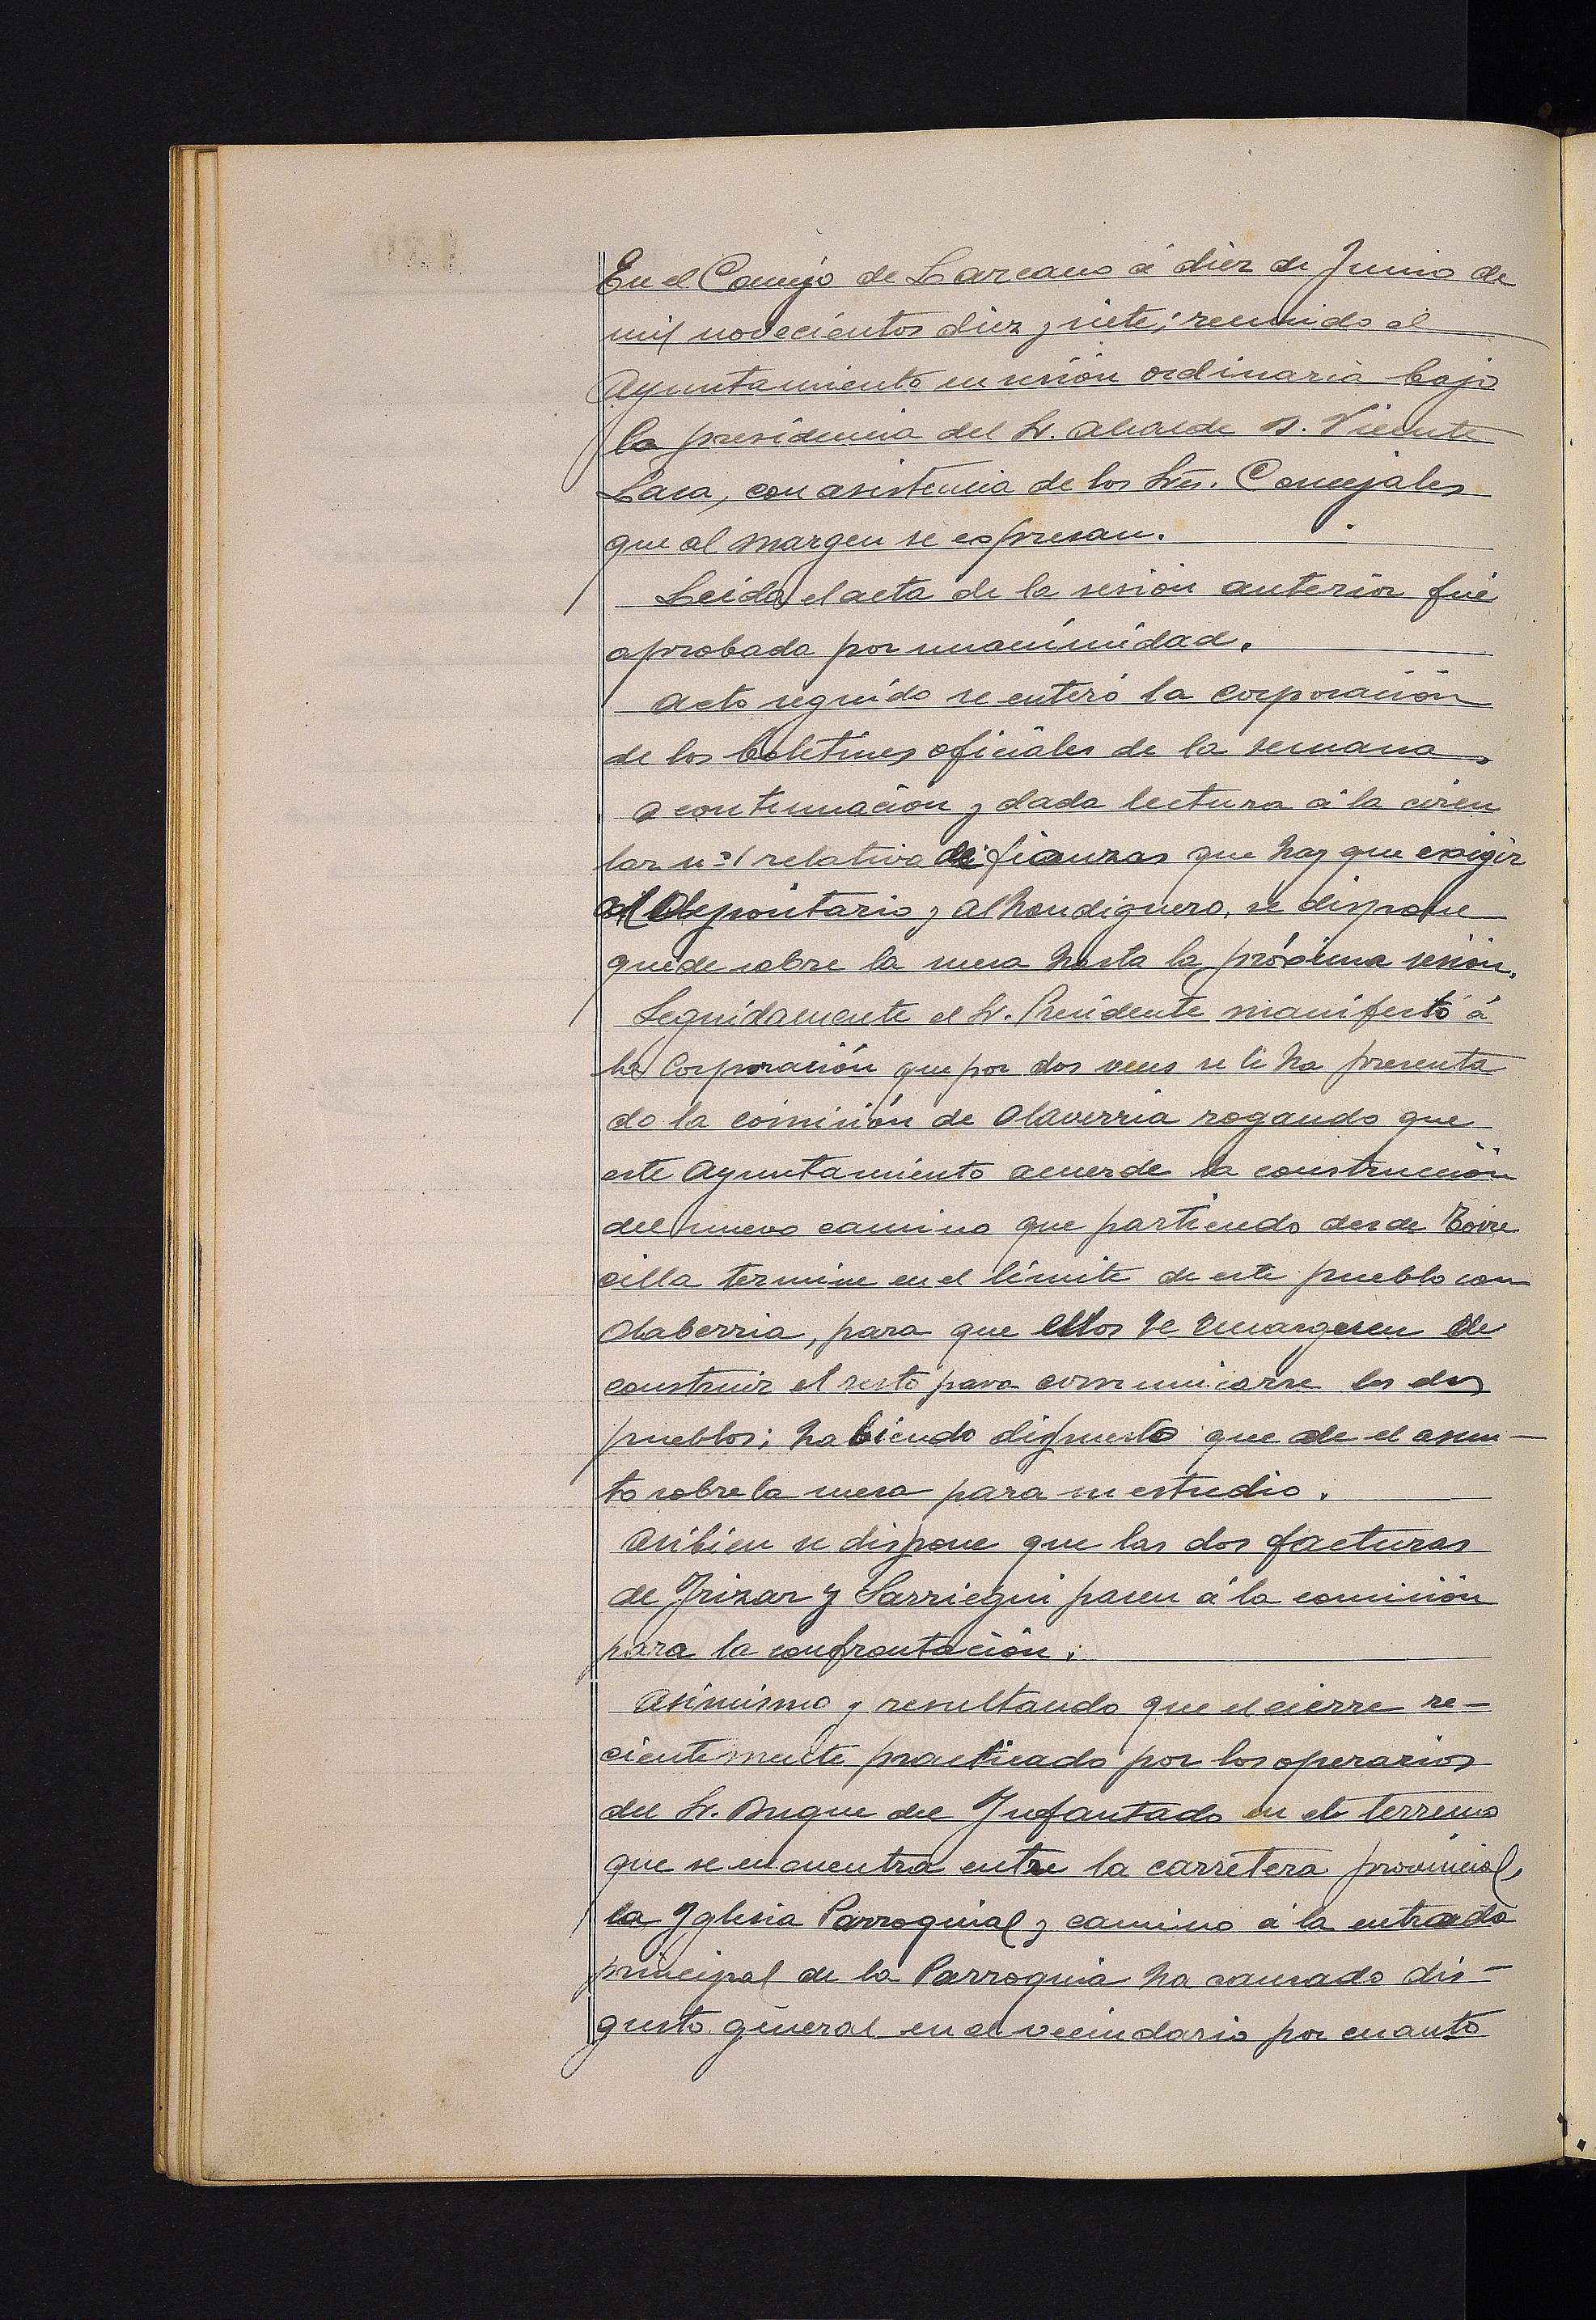 En el Concejo de Lazcano á diez de Junio de
mil novecientos diez y siete; reunido el
Ayuntamiento en sesión ordinaria bajo
la presidencia del Sr. Alcalde D. Vicente
Lasa, con asistencia de los Sres. Concejales
que al margen se expresan.
Leida el acta de la sesión anterior fué
aprobada por unanimidad.
Acto seguido se enteró la Corporación
de los boletines oficiales de la semana.
A continuación y dada lectura á la circu
lar nº 1 relativa de fianzas que hay que exigir
al Depositario y alhondiguero, se dispone
quede sobre la mesa hasta la próxima sesión.
Seguidamente el Sr. Presidente manifestó á
la Corporación que por dos veces se le ha presenta
do la comisión de Olaverria rogando que
este Ayuntamiento acuerde la construcción
del nuevo camino que partiendo desde
cilla termine en el límite de este pueblo con
Olaberria, para que ellos se encarguen de
construir el resto para comunicarse los dos
pueblos; habiendo dispuesto quede el asun-
to sobre la mesa para su estudio.
Asibien se dispone que las dos facturas
de Irizar y Sarriegui pasen á la comisión
para la confrontación.
Asimismo y resultando que el cierre re-
cientemente practicado por los operarios
del Sr. Duque del Infantado en el terreno
que se encuentra entre la carretera provincial,
la Yglesia Parroquial y camino á la entrada
principal de la Parroquia ha causado dis-
gusto general en el vecindario por cuanto